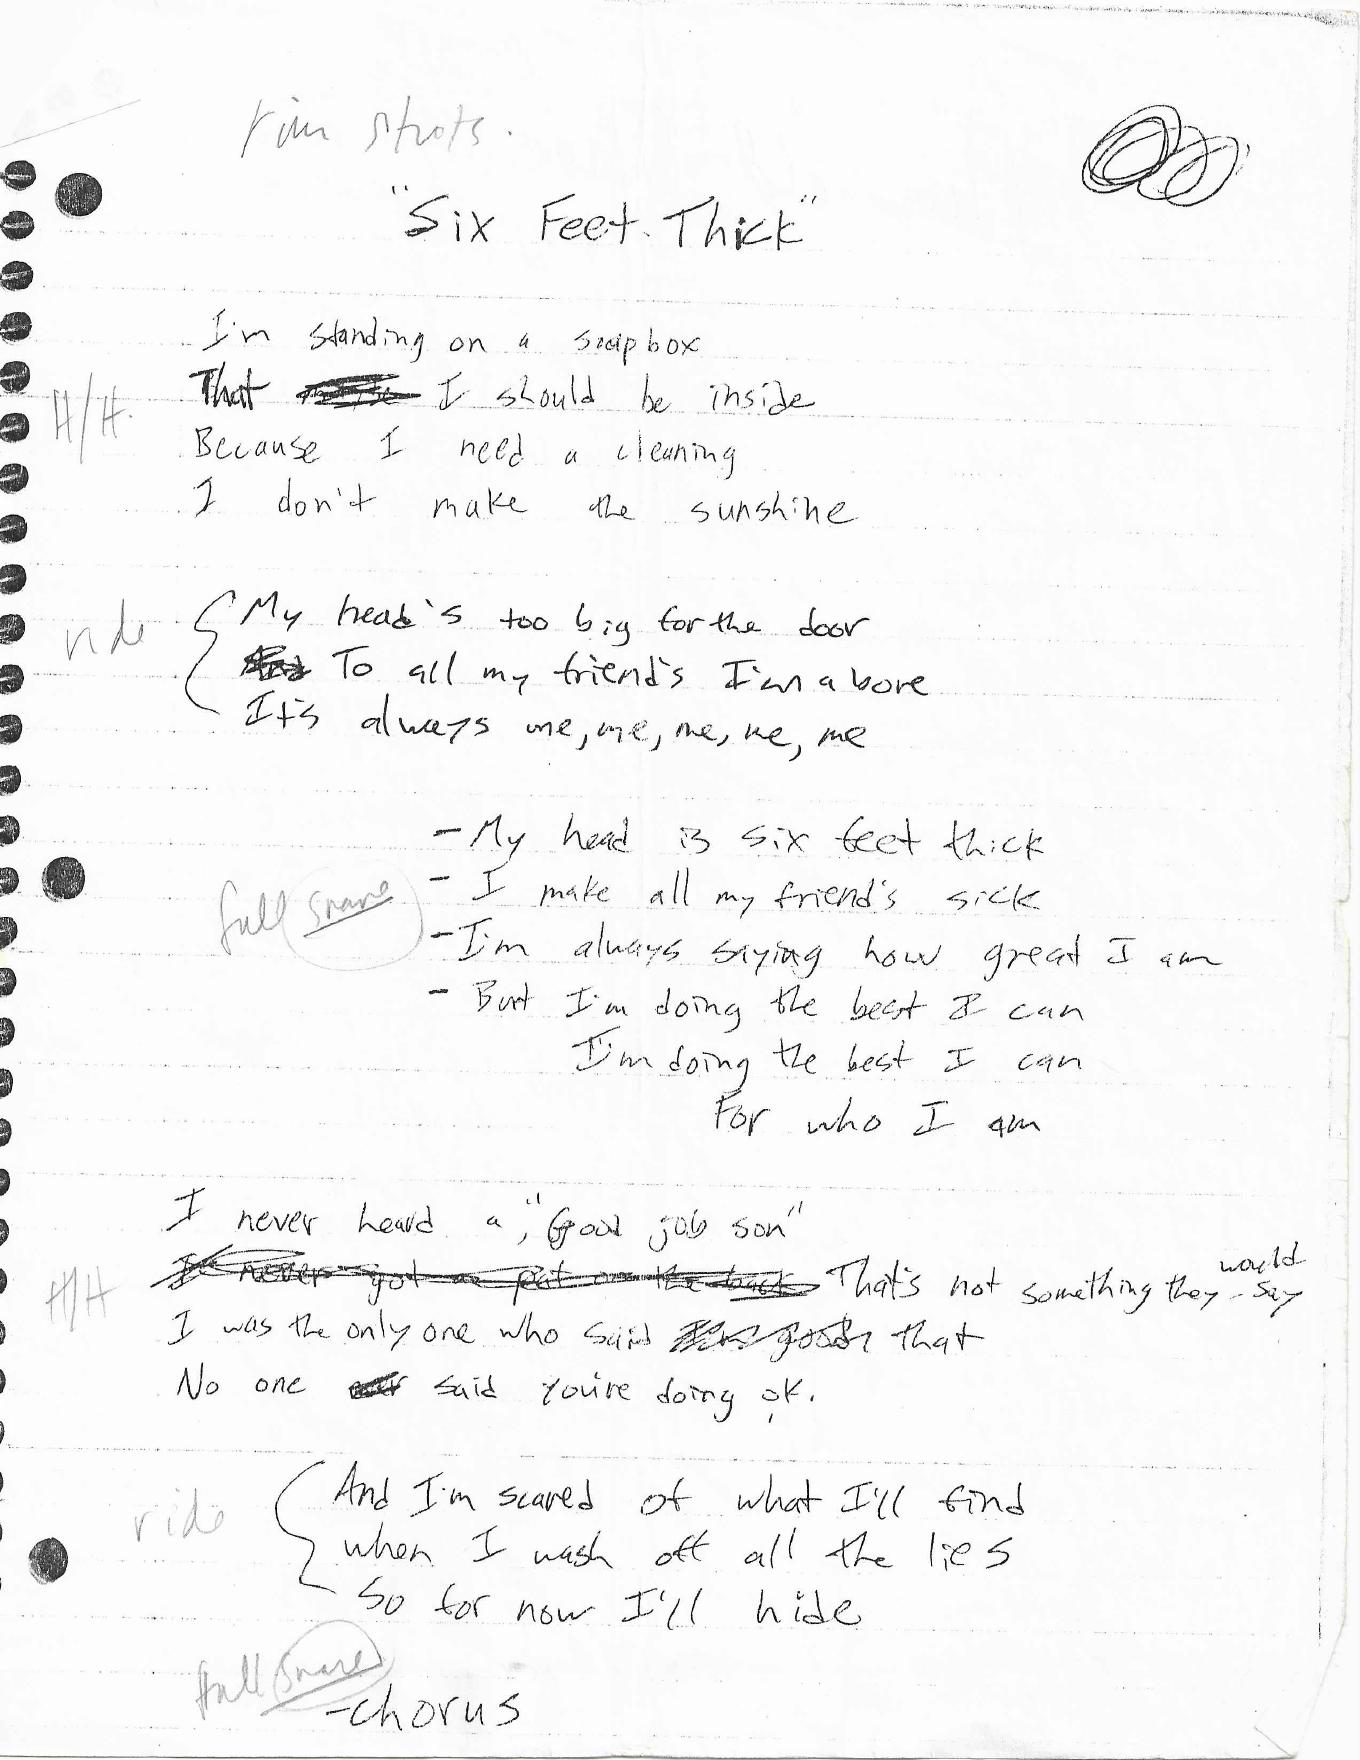 rim shots.
"Six Feet Thick"
I'm standing on a soapbox
That I should be inside
H/H.
Because I need a cleaning
I don't make the sunshine
My head's too big for the door
ride
To all my friend's I'm a bore
It's always me, me, me, me, me
- My head is six feet thick
full snare
- I make all my friend's sick
- I'm always saying how great I am
- But I'm doing the best I can
I'm doing the best I can
For who I am
I never heard a, "Good job son"
H/H
I never got a pat on the back That's not something they would say
I was the only one who said that
No one said you're doing ok.
And I'm scared of what I'll find
ride
when I wash off all the lies
So for now I'll hide
full snare
-chorus